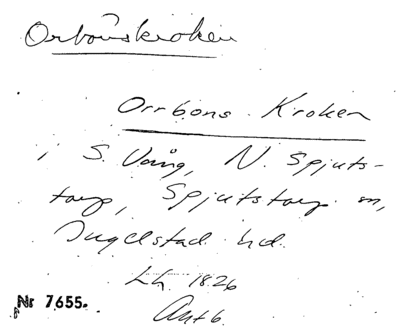 Orrbonskroken
Orrbons Kroken
i S. Vång, N. Spjuts-
torp, Spjutstorp sn,
Ingelstad hd.
Lh 1826
Nr 7655.